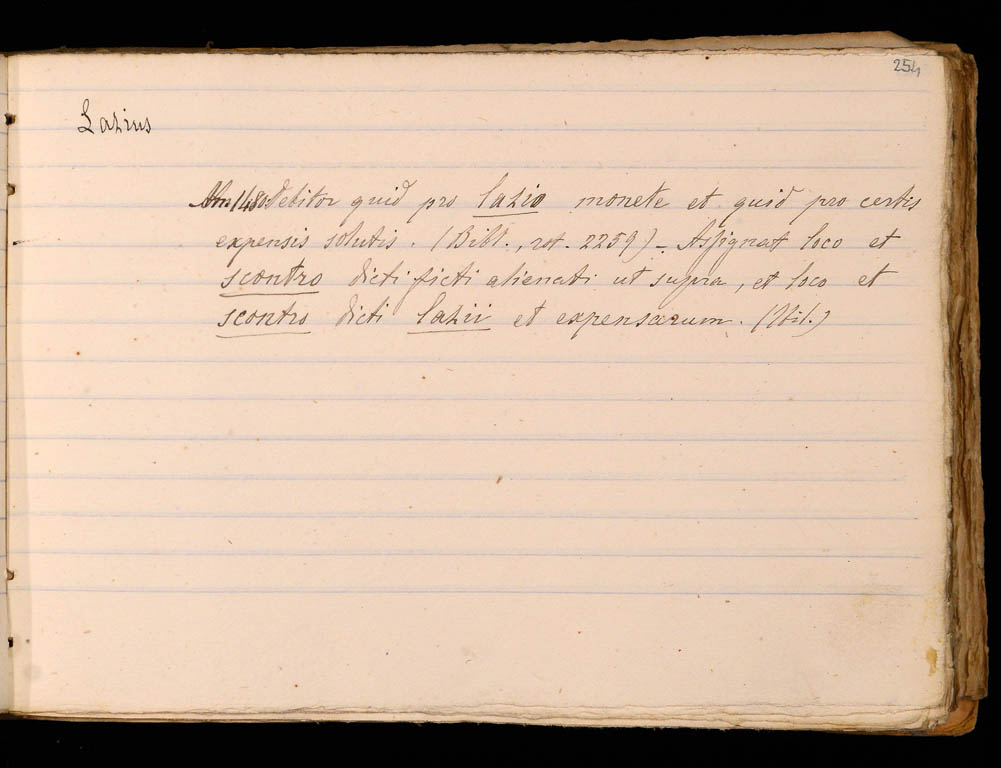 254
Lazius
1480 debitor quid pro lazio monete et quid pro certis
expensis solutis. (Bibl., rot. 2259) - Assignat loco et
scontro dicti ficti alienati ut supra, et loco et
scontro dicti lazii et expensarum. (Ibi.)